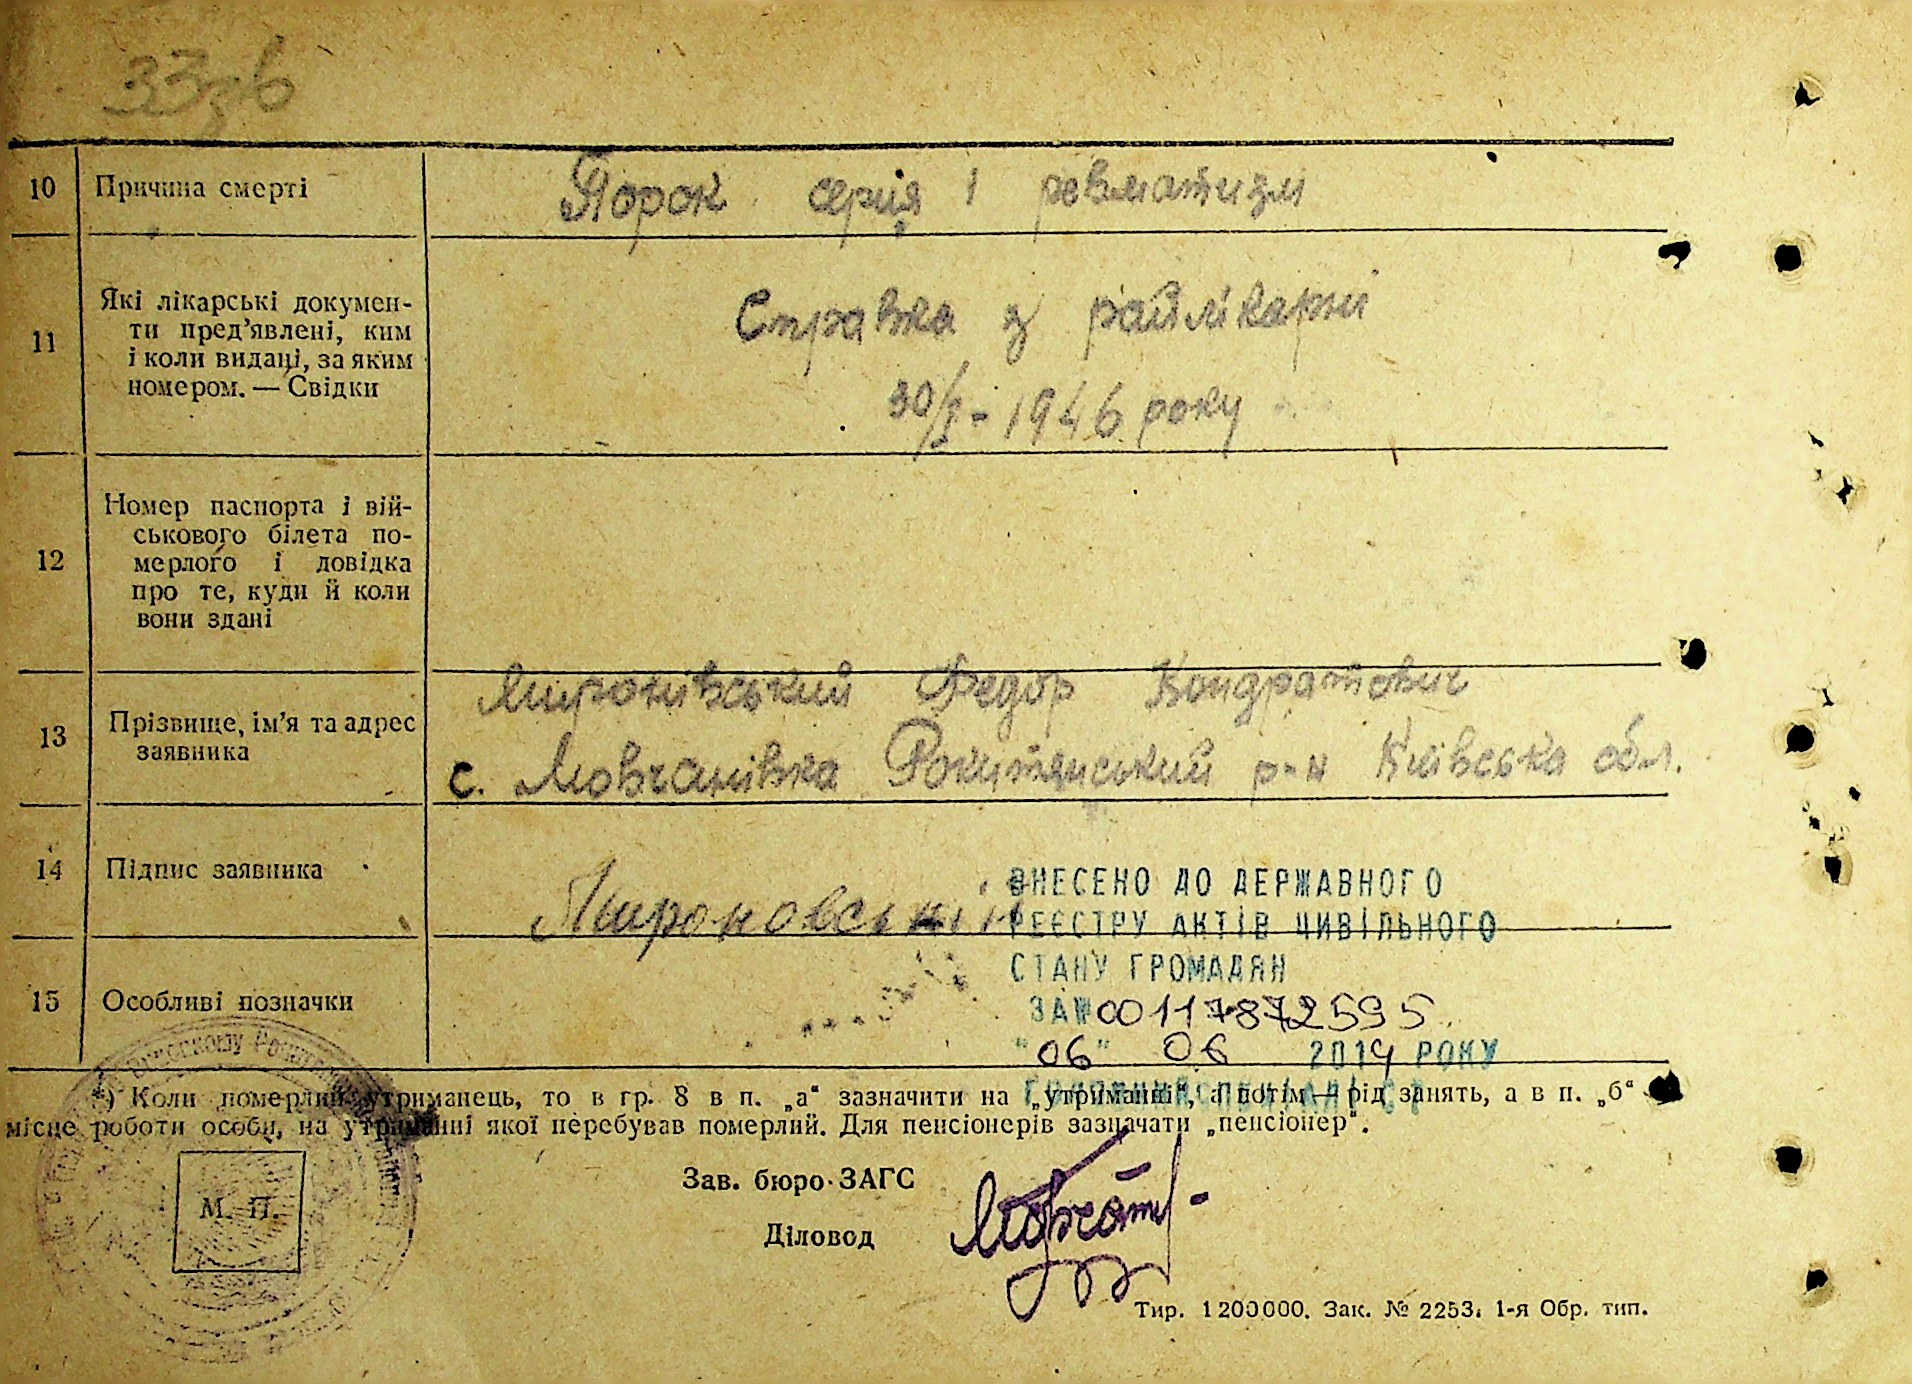 33зв
10 Причина смерті Порок серця і ревматизм
11 Які лікарські докумен-
ти пред’явлені, ким
і коли видаці, за яким
номером. — Свідки
Справка з райлікарні
30/I - 1946 року
12 Номер паспорта і вій-
ськового білета по-
мерлого і довідка
про те, куди й коли
вони здані
13 Прізвище, ім’я та адрес
заявника
Миронівський Федор Кондратович
с. Мовчанівка Рокитянський р-н Київська обл.
14 Підпис заявника Мироновський
15 Особливі позначки
ВНЕСЕНО ДО ДЕРЖАВНОГО
РЕЄСТРУ АКТІВ ЦИВІЛЬНОГО
СТАНУ ГРОМАДЯН
ЗА№ 00117872595
"06" 06 2014 РОКУ
*) Коли померлий утриманець, то в гр. 8 в п. „а“ зазначити на „утриманні“, а потім — рід занять, а в п. „б“
місце роботи особи, на утриманні якої перебував померлий. Для пенсіонерів зазначати „пенсіонер“.
М. П.
Зав. бюро ЗАГС
Діловод
Тир. 1200000. Зак. № 2253. 1-я Обр. тип.